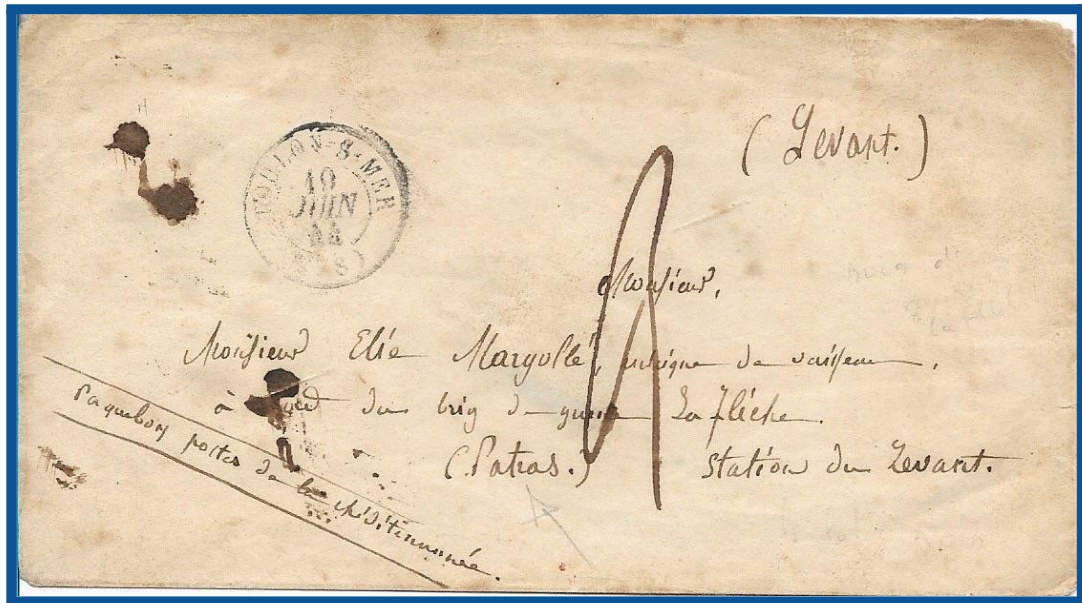 (Levant.)
TOULON-S-MER
19
JUIN
44
(78)
Monsieur,
Monsieur Elie Margollé, enseigne de vaisseau,
à bord du brig de guerre La flèche.
(Patras.) Station du Levant.
Paquebots postes de la Méditerranée.